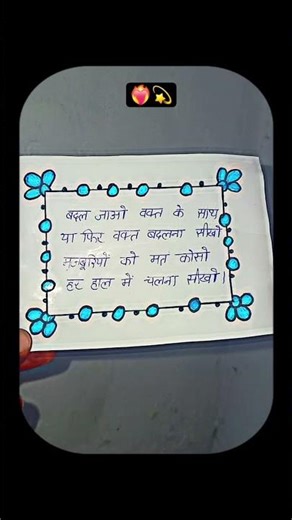 बदल जाओ वक्त के साथ
या फिर वक्त बदलना सीखो
मजबूरियों को मत कोसो
हर हाल में चलना सीखो।